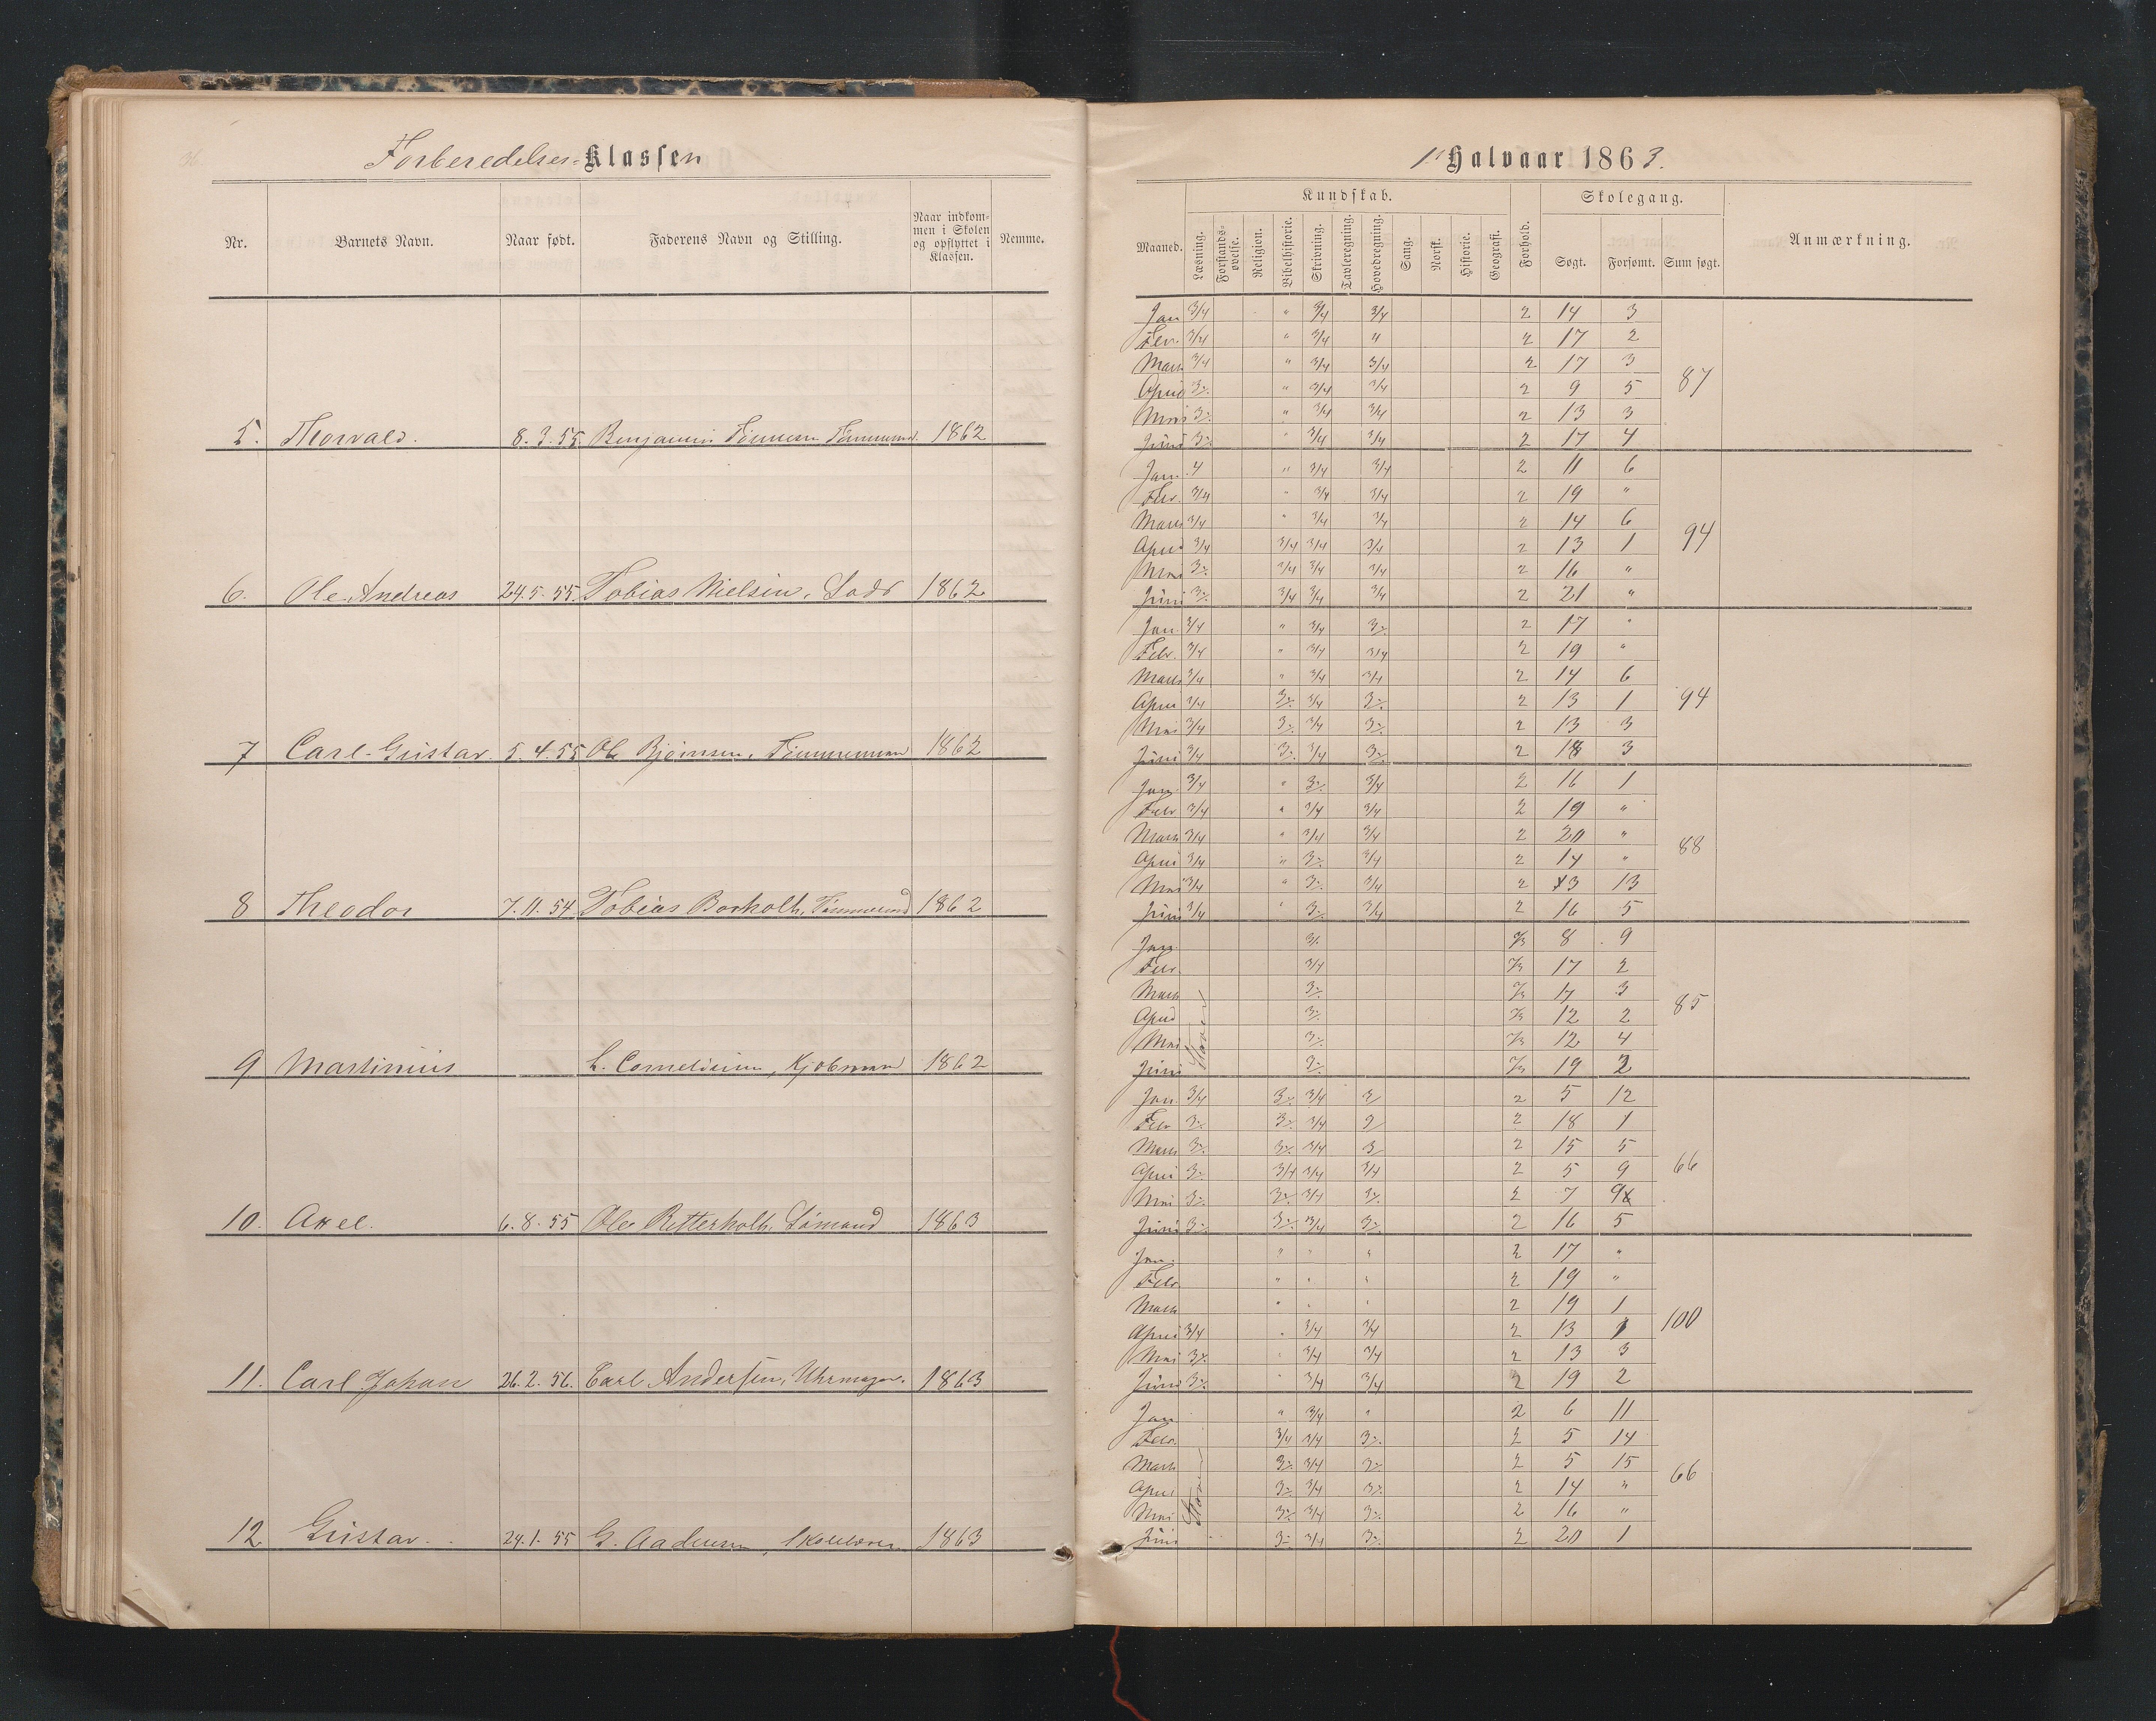 Forberedelses-Klassen
Nr. Barnets Navn. Naar født. Faderens Navn og Stilling. Naar indkommen i Skolen og opflyttet i Klassen. Nemme.
5. Thorvald. 8.3.55 Benjamin 1862
6. Ole Andreas 24.5.55. Tobias Nielsen, Lods 1862
7 Carl-Gustav. 5.4.55 Ole Bjørnsen, Tømmermand 1862
8 Theodor 7.11.54 Tobias Tømmermand 1862
9 Martinius Kjøbmand 1862
10. Axel. 6.8.55 Ole Sømand 1863
11. Carl Johan 26.2.56. Carl Andersen, Uhrmager. 1863
12 Gustav. 24.1.55 G. 1863
1ste Halvaar 1863.
Maaned. Kundskab. Forhold. Skolegang. Anmærkning.
Læsning. Forstandsøvelse. Religion. Bibelhistorie. Skrivning. Tavleregning. Hovedregning. Sang. Norsk. Historie. Geografi. Søgt. Forsømt. Sum søgt.
Jan 3/4 " 3/4 3/4 2 14 3
Febr. 3/4 " 3/4 " 2 17 2
Marts 3/4 " 3/4 3/4 2 17 3
April 3÷ " 3/4 3/4 2 9 5 87
Mai 3÷ " 3/4 3/4 2 13 3
Juni 3÷ " 3/4 3/4 2 17 4
Jan. 4 " 3/4 3/4 2 11 6
Febr. 3/4 " 3/4 3/4 2 19 "
Marts 3/4 " 3/4 3/4 2 14 6
April 3/4 3/4 3/4 3/4 2 13 1 94
Mai 3÷ 3/4 3/4 3/4 2 16 "
Juni 3÷ 3/4 3/4 3/4 2 21 "
Jan. 3/4 " 3/4 3÷ 2 17 "
Febr. 3/4 " 3/4 3/4 2 19 "
Marts 3/4 " 3/4 3/4 2 14 6
April 3/4 3÷ 3/4 3÷ 2 13 1 94
Mai 3/4 3÷ 3/4 3÷ 2 13 3
Juni 3/4 3÷ 3/4 3÷ 2 18 3
Jan. 3/4 " 3÷ 3/4 2 16 1
Febr 3/4 " 3/4 3/4 2 19 "
Marts 3/4 " 3/4 3/4 2 20 "
April 3/4 " 3÷ 3/4 2 14 " 88
Mai 3/4 " 3÷ 3/4 2 3 13
Juni 3/4 " 3÷ 3/4 2 16 5
Jan. 3÷ 8 9
Febr. 3/4 17 2
Marts 3÷ 17 3
April 3÷ 12 2 85
Mai 3÷ 12 4
Juni 3÷ 19 2
Jan. 3/4 3÷ 3/4 3 2 5 12
Febr 3÷ 3÷ 3/4 3 2 18 1
Marts 3÷ 3÷ 3/4 3 2 15 5
April 3÷ 3/4 3/4 3/4 2 5 9 66
Mai 3÷ 3÷ 3/4 3÷ 2 7 9
Juni 3÷ 3÷ 3/4 3÷ 2 16 5
Jan. " " " 2 17 "
Febr. " " " 2 19 "
Marts " " " 2 19 1
April 3/4 " 3/4 3/4 2 13 1 100
Mai 3÷ " 3/4 3/4 2 13 3
Juni 3÷ " 3/4 3/4 2 19 2
Jan " 3/4 " 2 6 11
Febr. 3/4 3/4 3÷ 2 5 14
Marts 3÷ 3/4 3÷ 2 5 15
April 3÷ 3/4 3÷ 2 14 " 66
Mai 3÷ 3/4 3÷ 2 16 "
Juni 3÷ 3/4 3÷ 2 20 1